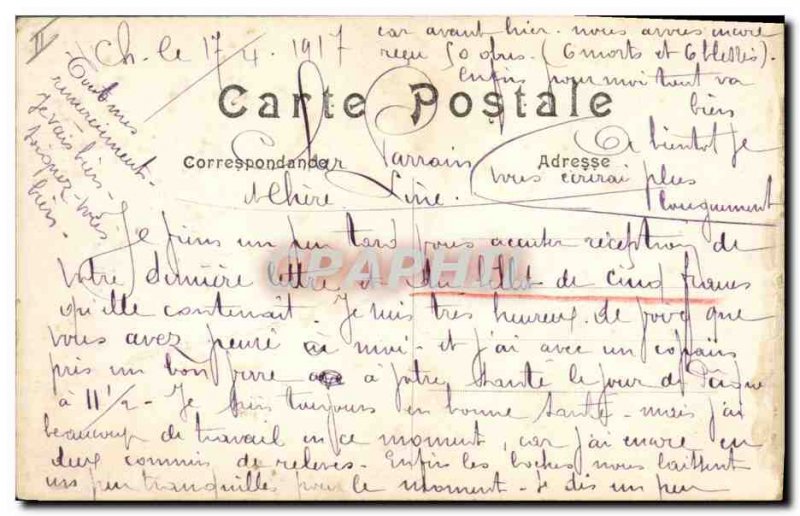 II
Ch. le 17/4. 1917
Carte Postale
Correspondance
Adresse
Cher Parrain
Chère Line.
Je viens un peu tard vous accuser réception de
votre dernière lettre et du billet de cinq francs
qu'elle contenait. Je suis très heureux de voir que
vous avez pensé à moi - et j'ai avec un copain
pris un bon verre à votre santé le jour de Pâques
à 11 1/2 - Je suis toujours en bonne santé - mais j'ai
beaucoup de travail en ce moment, car j'ai encore eu
deux commis de relevés. Enfin les boches nous laissent
un peu tranquilles pour le moment - Je dis un peu
car avant hier nous avons encore
reçu 50 obus. (6 morts et 6 blessés).
Enfin pour moi tout va
bien
A bientôt je
vous écrirai plus
longuement
Tout mes
remerciements -
Je vais bien -
Soignez-vous
bien -
CPAPHIL